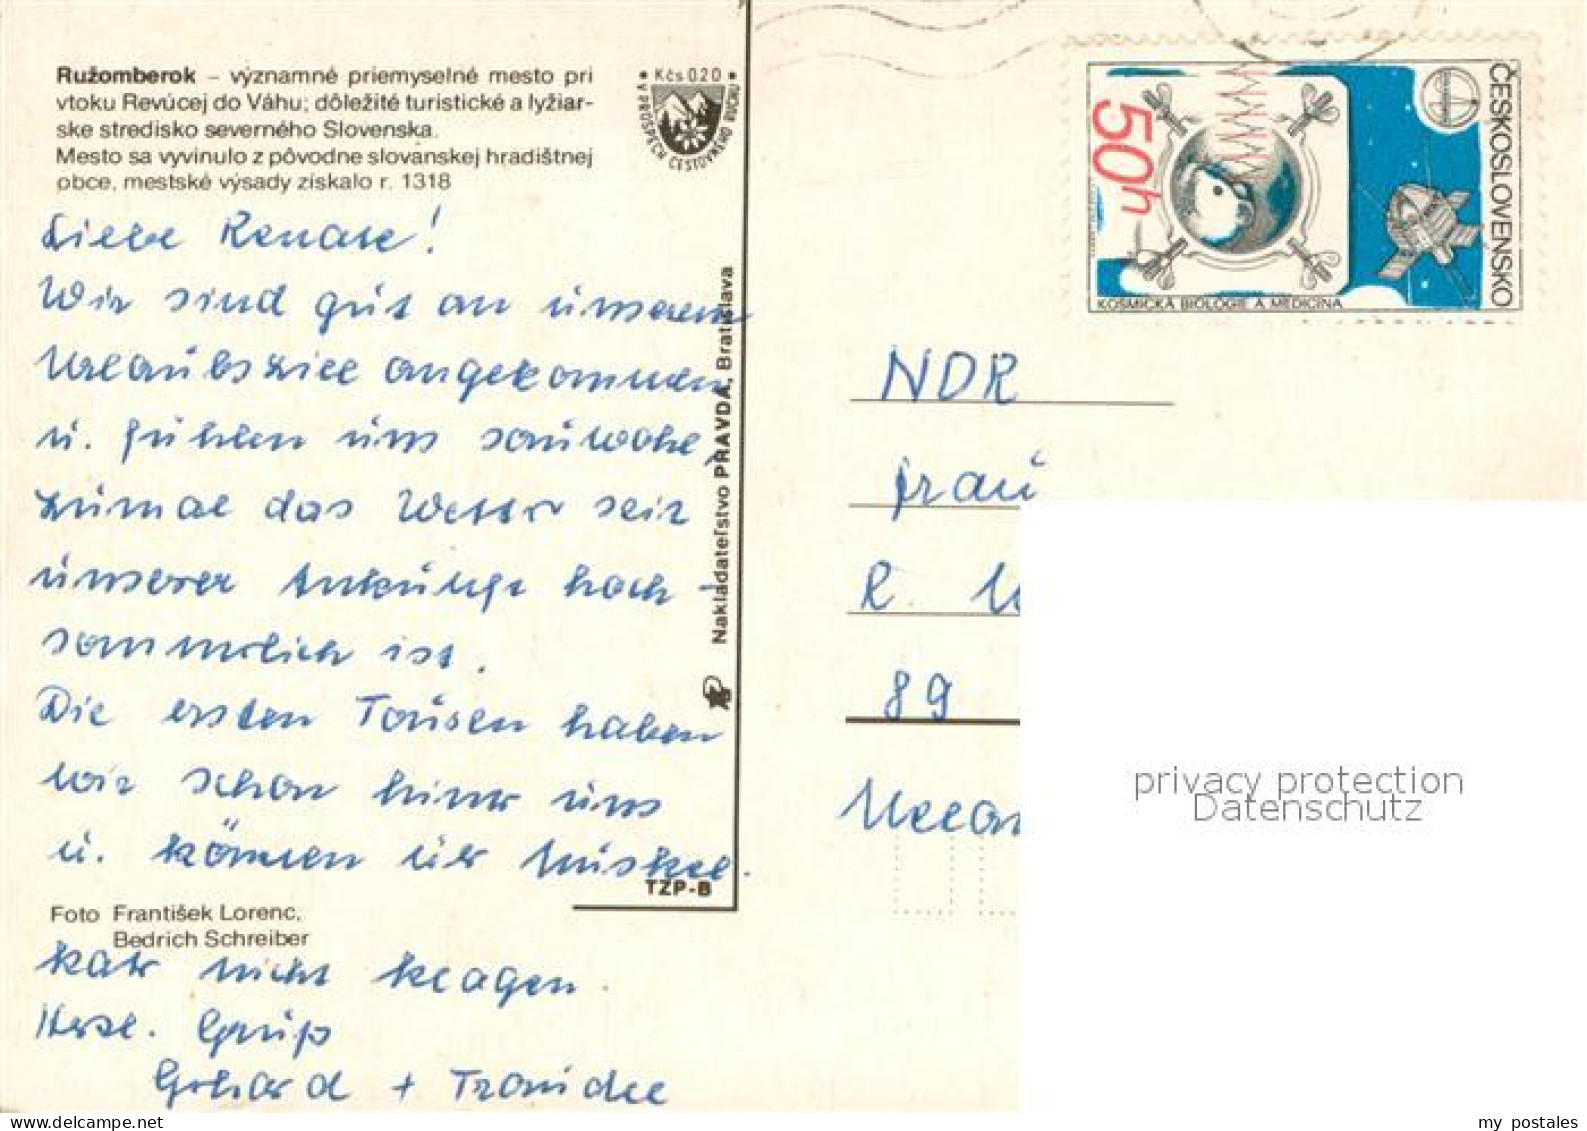 Ružomberok – významné priemyselné mesto pri
vtoku Revúcej do Váhu; dôležité turistické a lyžiar-
ske stredisko severného Slovenska.
Mesto sa vyvinulo z pôvodne slovanskej hradištnej
obce, mestské výsady získalo r. 1318
• Kčs 0.20 •
V PROSPECH CESTOVNÉHO RUCHU
Liebe Renate!
Wir sind gut an unserem
Urlaubsziel angekommen
u. fühlen uns sauwohl,
zumal das Wetter seit
unserer Ankunft hoch-
sommerlich ist.
Die ersten Touren haben
wir schon hinter uns
u. können über Muskel-
kater nicht klagen.
Herzl. Gruß
Gerhard + Traudel
Foto František Lorenc,
Bedrich Schreiber
Nakladateľstvo PRAVDA, Bratislava
TZP-B
ČESKOSLOVENSKO
50h
KOSMICKÁ BIOLOGIE A MEDICÍNA
NDR
Frau
R.
89
privacy protection
Datenschutz
my postales